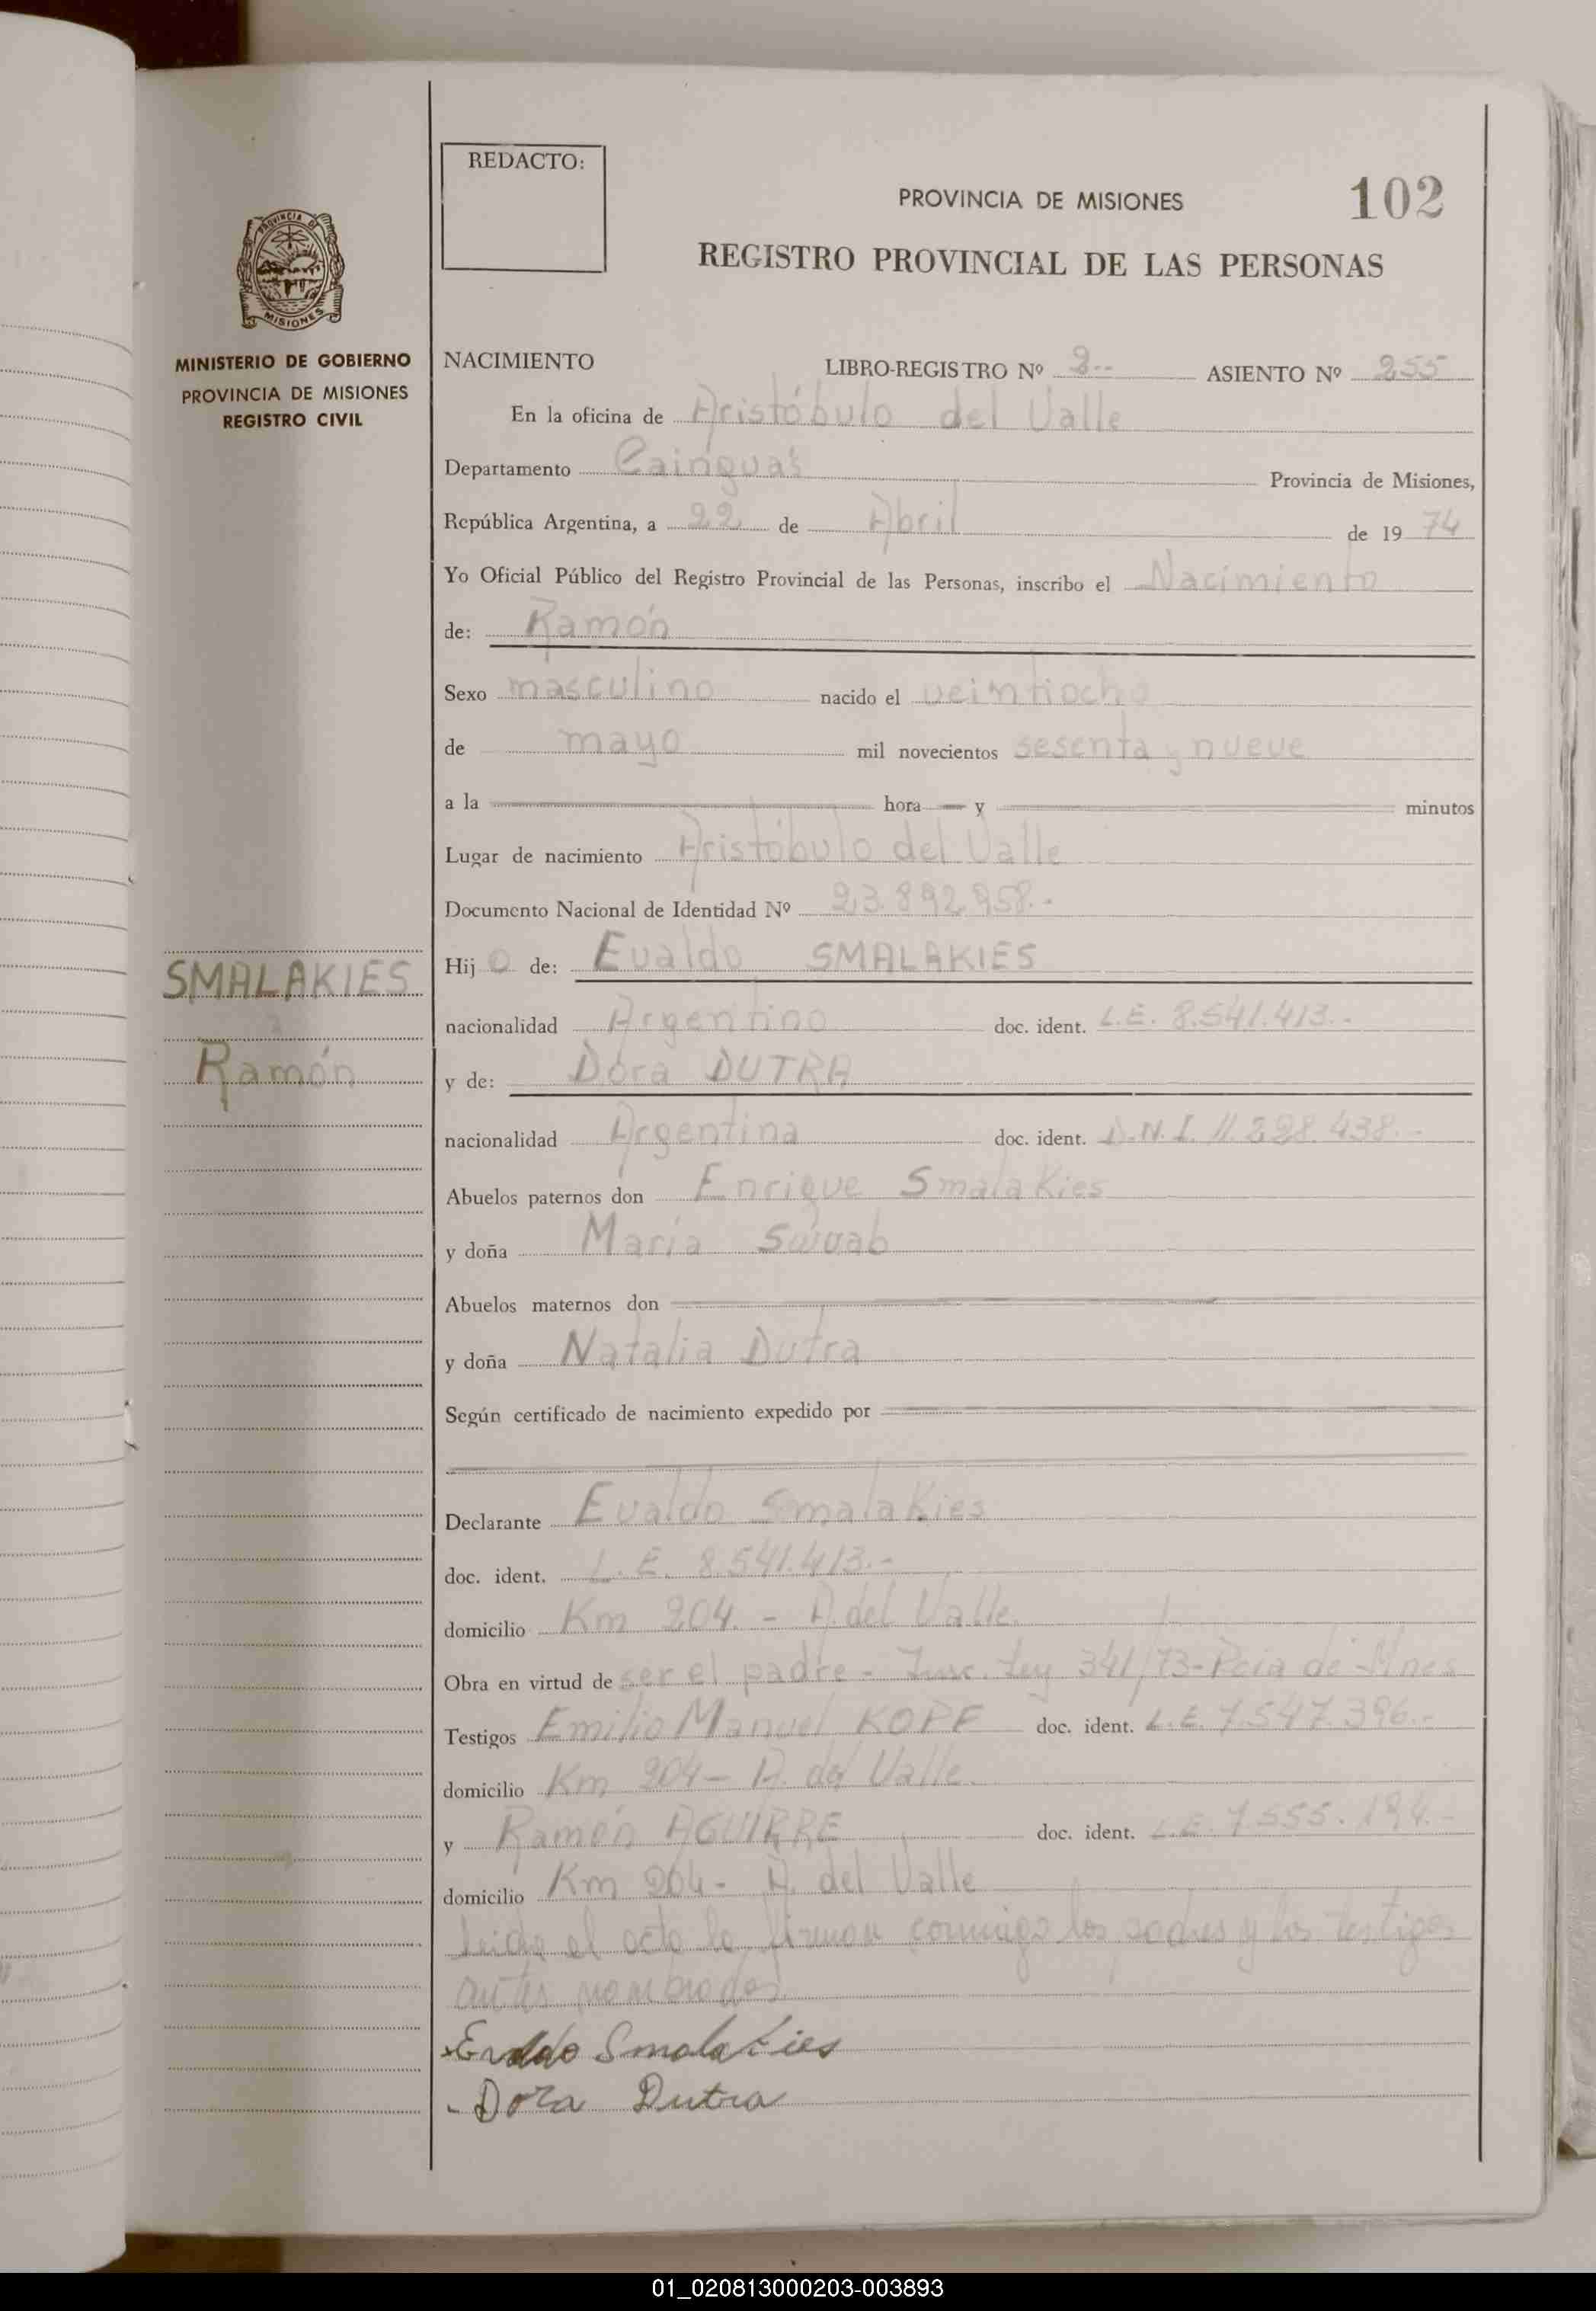 REDACTO:
PROVINCIA DE MISIONES
102
REGISTRO PROVINCIAL DE LAS PERSONAS
PROVINCIA DE
MISIONES
MINISTERIO DE GOBIERNO
PROVINCIA DE MISIONES
REGISTRO CIVIL
NACIMIENTO LIBRO-REGISTRO Nº 2-- ASIENTO Nº 255
En la oficina de Aristóbulo del Valle
Departamento Cainguás Provincia de Misiones,
República Argentina, a 22 de Abril de 1974
Yo Oficial Público del Registro Provincial de las Personas, inscribo el Nacimiento
de: Ramón
Sexo masculino nacido el veintiocho
de mayo mil novecientos sesenta y nueve
a la hora y minutos
Lugar de nacimiento Aristóbulo del Valle
Documento Nacional de Identidad Nº 23.892.958.-
SMALAKIES
Ramón
Hijo de: Evaldo SMALAKIES
nacionalidad Argentino doc. ident. L.E. 8.541.413.-
y de: Dora DUTRA
nacionalidad Argentina doc. ident. D.N.I. 11.228.438.-
Abuelos paternos don Enrique Smalakies
y doña María
Abuelos maternos don
y doña Natalia Dutra
Según certificado de nacimiento expedido por
Declarante Evaldo Smalakies
doc. ident. L.E. 8.541.413.-
domicilio Km 204. - A. del Valle.
Obra en virtud de ser el padre - Insc. Ley 341/73-Pcia de Mnes
Testigos Emilio Manuel KOPF doc. ident. L.E. 7.547.396.-
domicilio Km 204 - A. del Valle.
y Ramón AGUIRRE doc. ident. L.E. 7.555.194.-
domicilio Km 204 - A. del Valle
Leida el acta la firman conmigo los padres y los testigos
antes nombrados.
Evaldo Smalakies
Dora Dutra
01_020813000203-003893